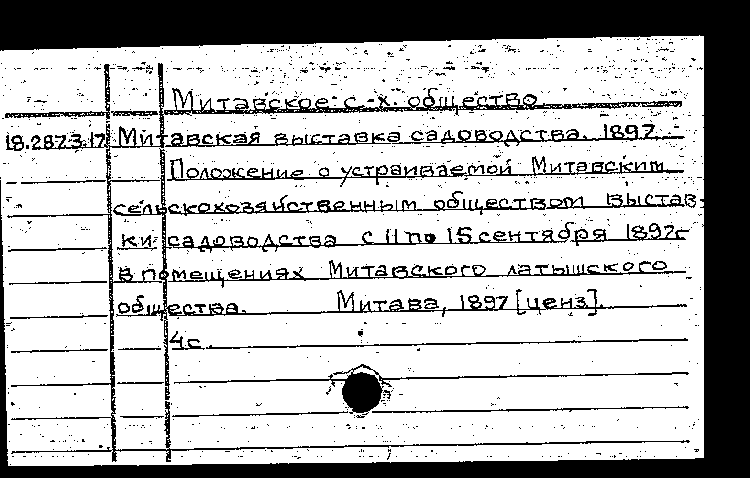 Митавское с.-х. общество
18.287.3.17 Митавская выставка садоводства. 1897.
Положение о устраиваемой Митавским
сельскохозяйственным обществом выстав-
ки садоводства с 11 по 15 сентября 1897г
в помещениях Митавского латышского
общества. Митава, 1897 [ценз].
4с.